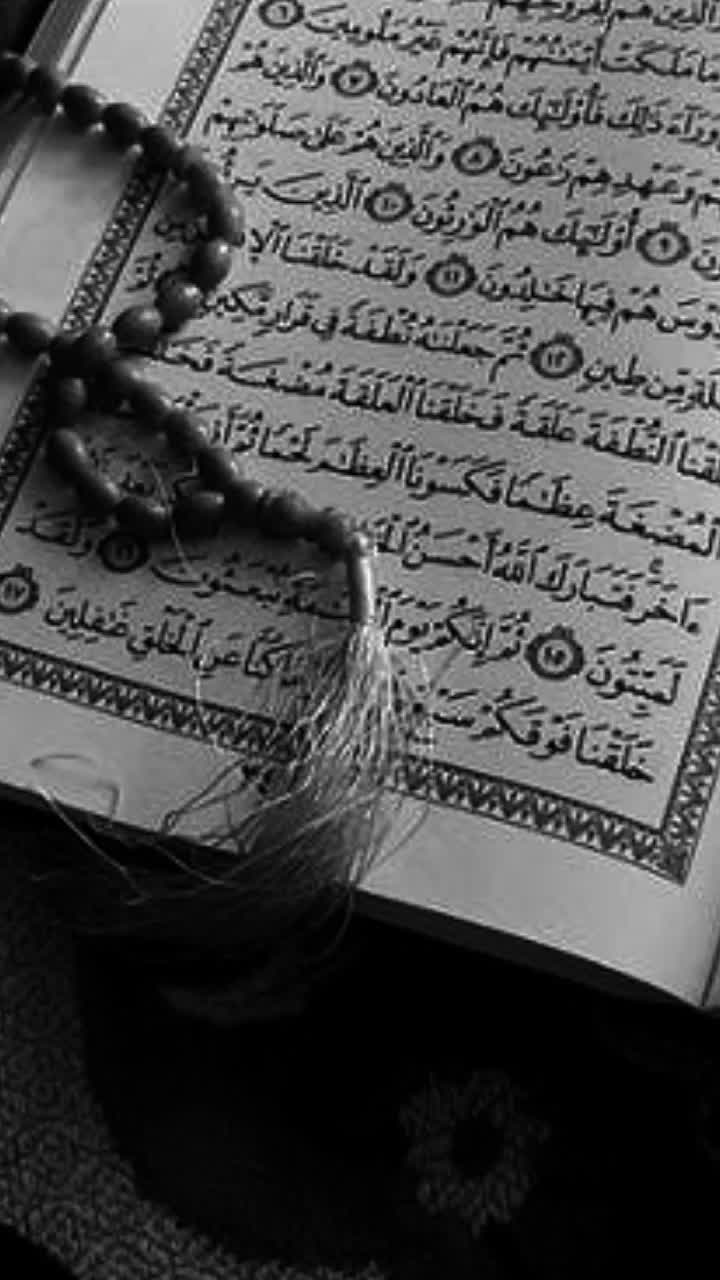 ٱلَّذِينَ هُمْ لِفُرُوجِهِمْ
مَا مَلَكَتْ أَيْمَٰنُهُمْ فَإِنَّهُمْ غَيْرُ مَلُومِينَ ٦
وَرَآءَ ذَٰلِكَ فَأُو۟لَٰٓئِكَ هُمُ ٱلْعَادُونَ ٧ وَٱلَّذِينَ هُمْ
وَعَهْدِهِمْ رَٰعُونَ ٨ وَٱلَّذِينَ هُمْ عَلَىٰ صَلَوَٰتِهِمْ
٩ أُو۟لَٰٓئِكَ هُمُ ٱلْوَٰرِثُونَ ١٠ ٱلَّذِينَ
هُمْ فِيهَا خَٰلِدُونَ ١١ وَلَقَدْ خَلَقْنَا
مِّن طِينٍ ١٢ ثُمَّ جَعَلْنَٰهُ نُطْفَةً فِى قَرَارٍ مَّكِينٍ
ٱلنُّطْفَةَ عَلَقَةً فَخَلَقْنَا ٱلْعَلَقَةَ مُضْغَةً
ٱلْمُضْغَةَ عِظَٰمًا فَكَسَوْنَا ٱلْعِظَٰمَ لَحْمًا ثُمَّ
ءَاخَرَ فَتَبَارَكَ ٱللَّهُ أَحْسَنُ
لَمَيِّتُونَ ١٥ ثُمَّ إِنَّكُمْ يَوْمَ تُبْعَثُونَ ١٦ وَلَقَدْ
خَلَقْنَا فَوْقَكُمْ كُنَّا عَنِ ٱلْخَلْقِ غَٰفِلِينَ ١٧